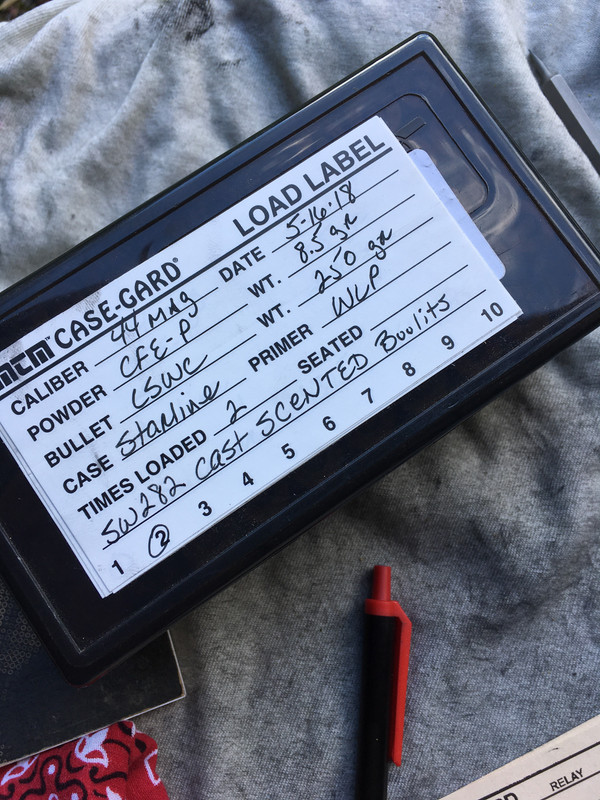 MTM CASE-GARD® LOAD LABEL
CALIBER 44 MAG DATE 5-16-18
POWDER CFE-P WT. 8.5 gr
BULLET LSWC WT. 250 gr
CASE Starline PRIMER WLP
TIMES LOADED 2 SEATED
SW282 Cast SCENTED Boolits
1 2 3 4 5 6 7 8 9 10
RELAY